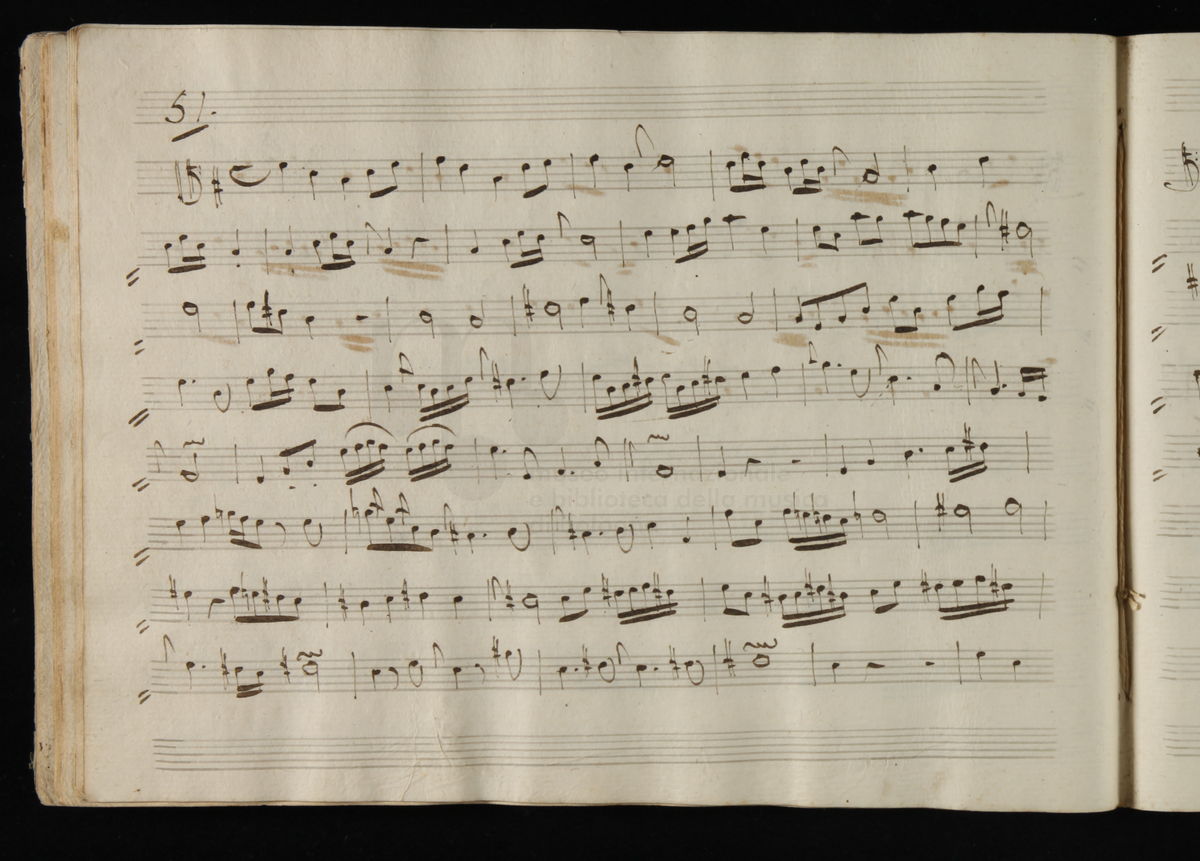 51.
museo internazionale
e biblioteca della musica